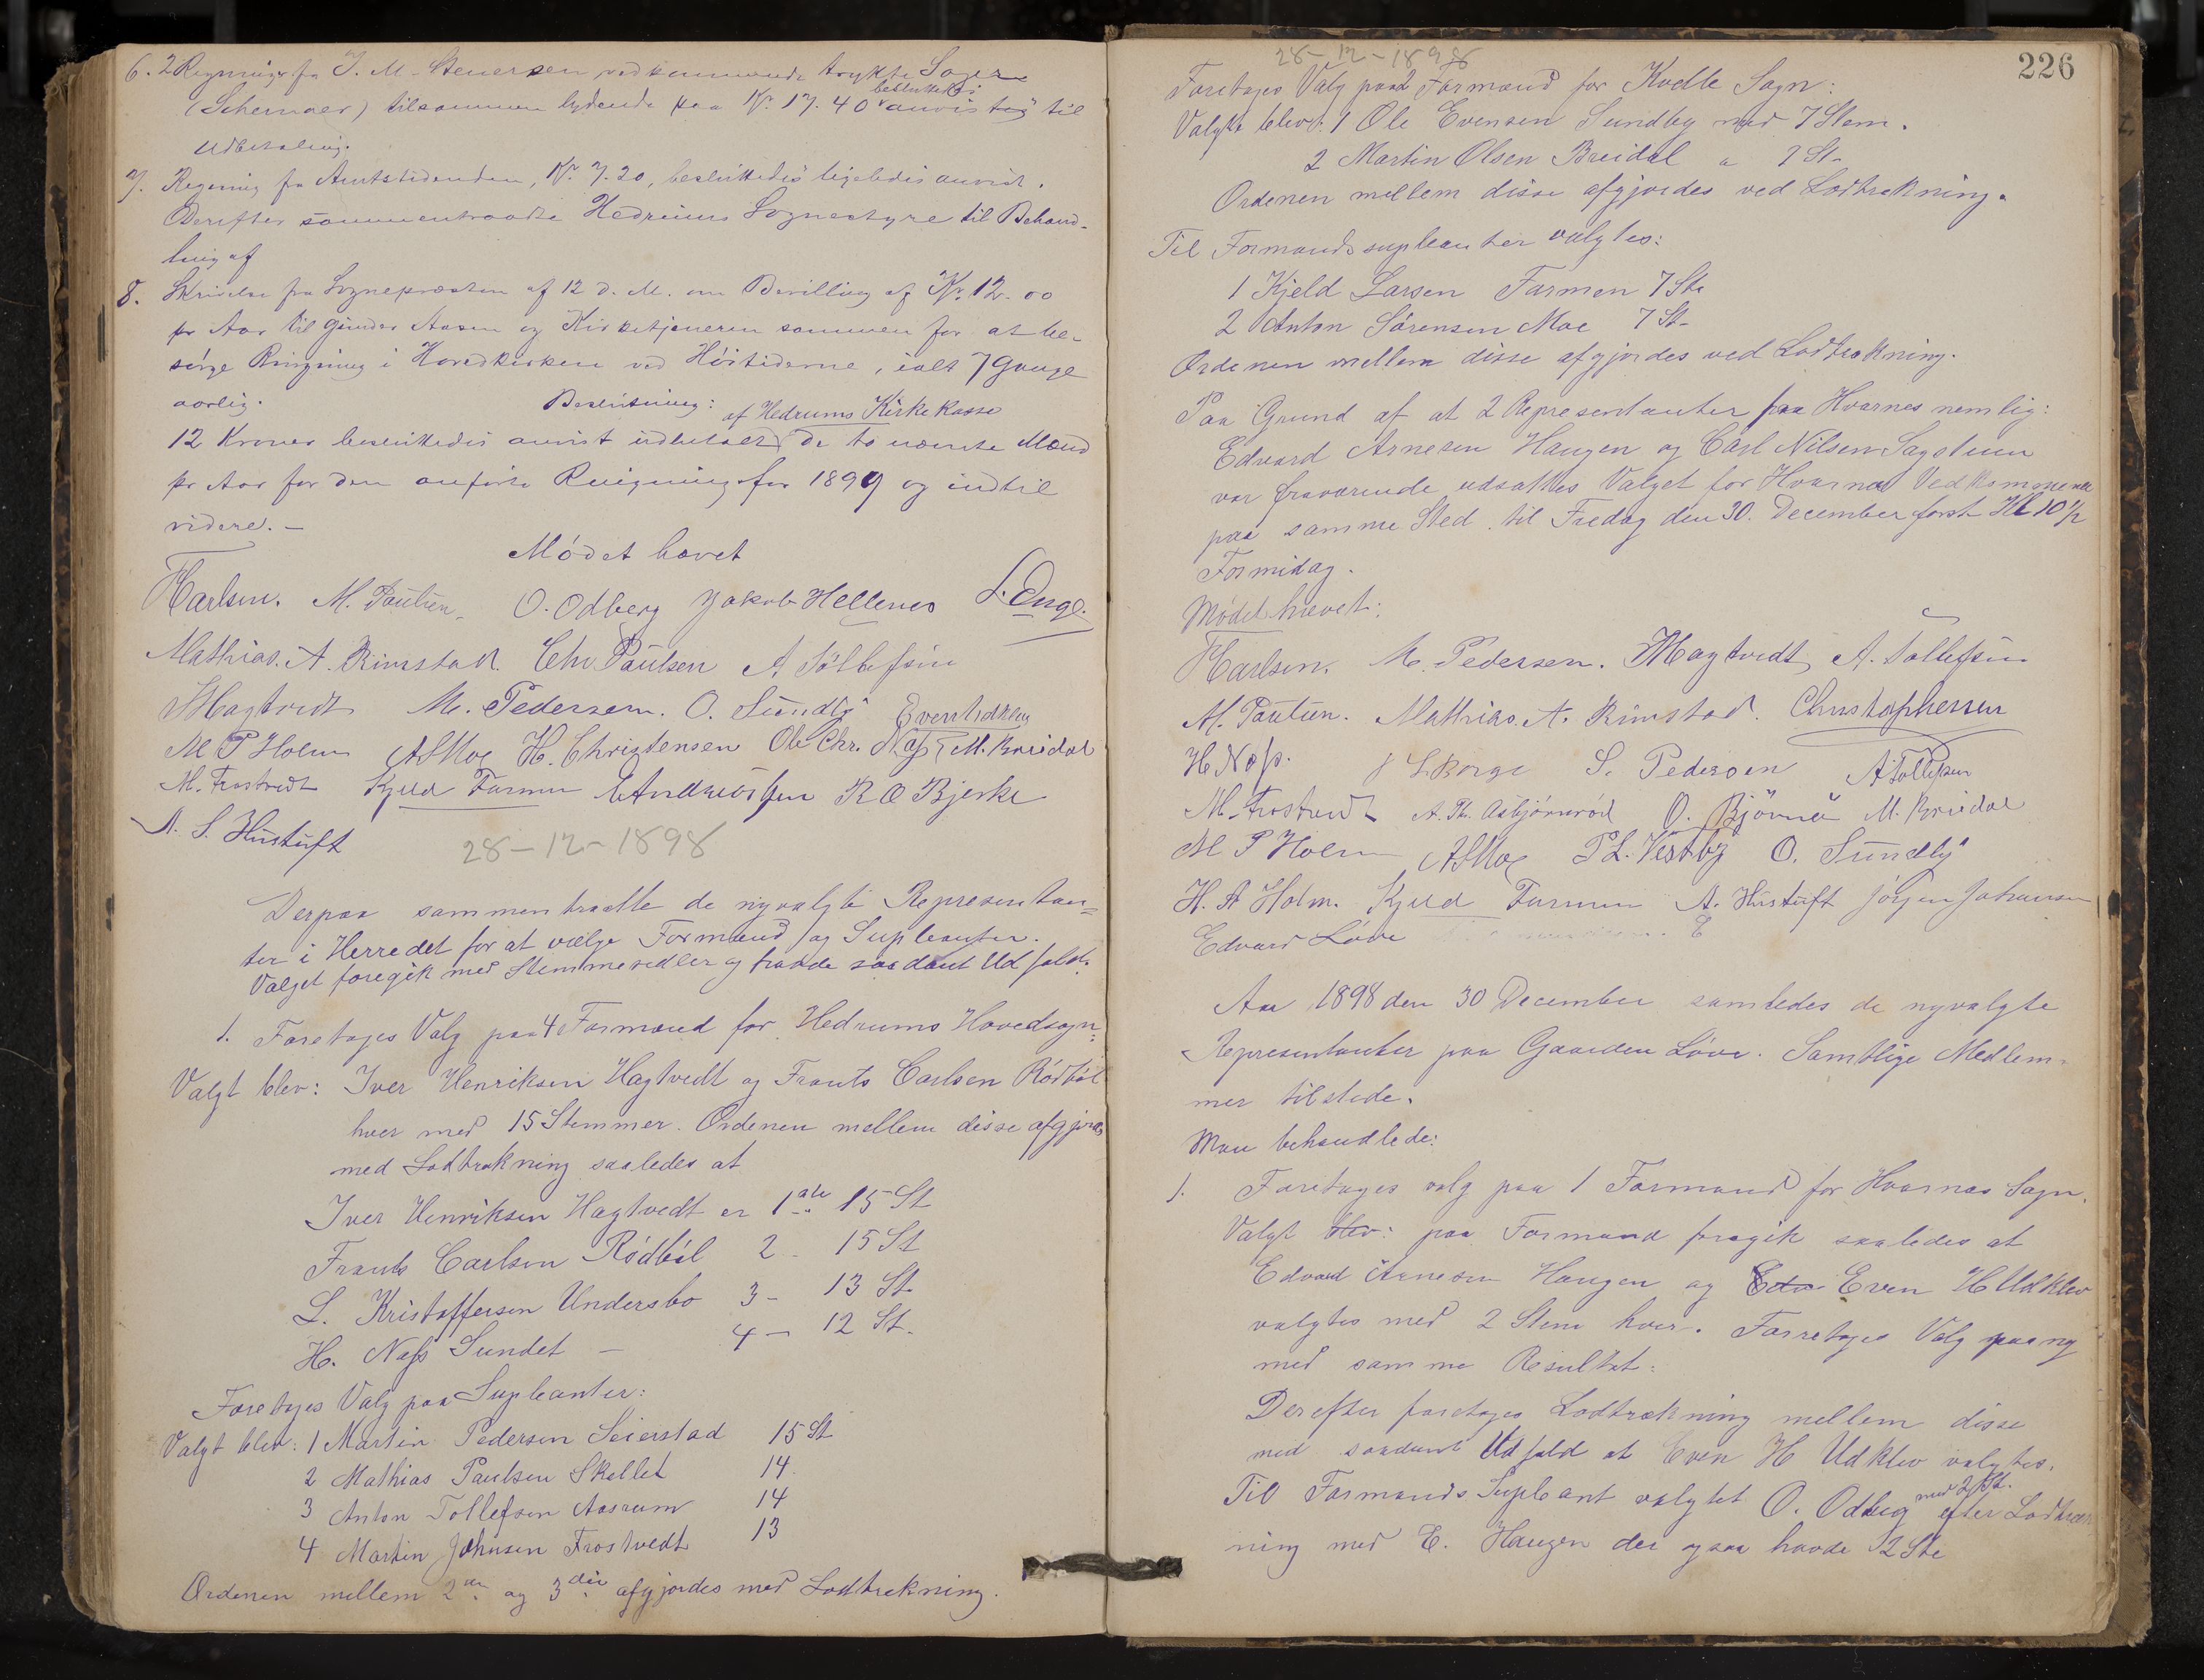 6. 2 Regninger fra J. M. Stenersen vedkommende trykte Sager
(Schemaer) tilsammen lydende paa Kr. 17.40 besluttedes anvist til
Udbetaling.
7. Regning fra Amtstidenden, Kr. 7.20, besluttedes ligeledes anvist.
Derefter sammentraadte Hedrums Sognestyre til Behand-
ling af
8. Skrivelse fra Sognepræsten af 12 d. M. om Bevilling af Kr. 12.00
pr Aar til Gunder Aasen og Kirketjeneren sammen for at be-
sørge Ringning i Hovedkirken ved Høitiderne, ialt 7 Gange
aarlig. Beslutning: af Hedrums Kirkekasse
12 Kroner besluttedes anvist udbetalt de to nævnte Mænd
pr Aar for den anførte Ringning for 1899 og indtil
videre. –
Mödet hævet
F Karlsen. M. Paulsen. O. Odberg Jakob Hellenes L. Enge.
Mathias. A. Rimstad. Chr. Paulsen A Tollefsen
I Hagtvedt M. Pedersen. O. Sundby Even Udklev
M P Holm A S Moe H. Christensen Ole Chr. Næss M. Breidal
M. Frostvedt Kjeld Farmen C Andreassen R O Bjerke
A. S. Hustuft
28-12-1898
Derpaa sammentraatte de nyvalgte Representan=
ter i Herredet for at vælge Formænd og Supleanter.
Valget foregik med Stemmesedler og havde saadant Udfald.
1. Foretoges Valg paa 4 Formænd for Hedrums Hovedsogn:
Valgt blev: Iver Henriksen Hagtvedt og Frants Carlsen Rödbøl
hver med 15 Stemmer. Ordenen mellem disse afgjordes
med Lodtrækning saaledes at
Iver Henriksen Hagtvedt er 1ste 15 St
Frants Carlsen Rödbøl 2 - 15 St
L. Kristoffersen Undersbo 3 - 13 St.
H. Næss Sundet – 4 – 12 St.
Foretoges Valg paa Supleanter:
Valgt blev: 1 Martin Pedersen Seierstad 15 St
2 Mathias Paulsen Skallet 14
3 Anton Tollefsen Aasrum 14
4 Martin Johnsen Frostvedt 13
Ordenen mellem 2den og 3die afgjordes med Lodtrækning.
28-12-1898
226
Foretoges Valg paa 2 Formænd for Kvelle Sogn:
Valgte blev: 1 Ole Evensen Sundby med 7 Stem.
2 Martin Olsen Breidal " 7 St-
Ordenen mellem disse afgjordes ved Lodtrækning.
Til Formandssupleanter valgtes:
1 Kjeld Larsen Farmen 7 Ste
2 Anton Sörensen Moe 7 St-
Ordenen mellem disse afgjordes ved Lodtrækning.
Paa Grund af at 2 Representanter fra Hvarnes nemlig:
Edvard Arnesen Haugen og Carl Nilsen Sagstuen
var fraværende udsattes Valget for Hvarnes Vedkommende
paa samme Sted til Fredag den 30. December først Kl 10 1/2
Formidag.
Mödet hævet:
F Karlsen. M. Pedersen. I Hagtvedt A. Tollefsen
M. Paulsen. Mathias. A. Rimstad. Christophersen
H. Næss. L. Borge S. Pedersen A Tollefsen
M. Frostvedt A. Th. Asbjørnrød O. Bjørnø M. Breidal
M P Holm A S Moe P L. Vestby O. Sundby
H. A Holm. Kjeld Farmen A. Hustuft Jörgen Johansen
Edvard Löve
Aar 1898 den 30 December samledes de nyvalgte
Representanter paa Gaarden Löve. Samtlige Medlem-
mer tilstede.
Man behandlede:
1. Foretoges valg paa 1 Formand for Hvarnes Sogn.
Valgt blev: paa Formand foregik saaledes at
Edvard Arnesen Haugen og Edv Even H Udklev
valgtes med 2 Stem hver. Forretoges Valg paa ny
med samme Resultat:
Derefter foretoges Lodtrækning mellem disse
med saadant Udfald at Even H Udklev valgtes.
Til Formands Supleant valgtet O. Odberg med 2 St. efter Lodtræk
ning med E. Haugen der ogsaa havde 2 Ste